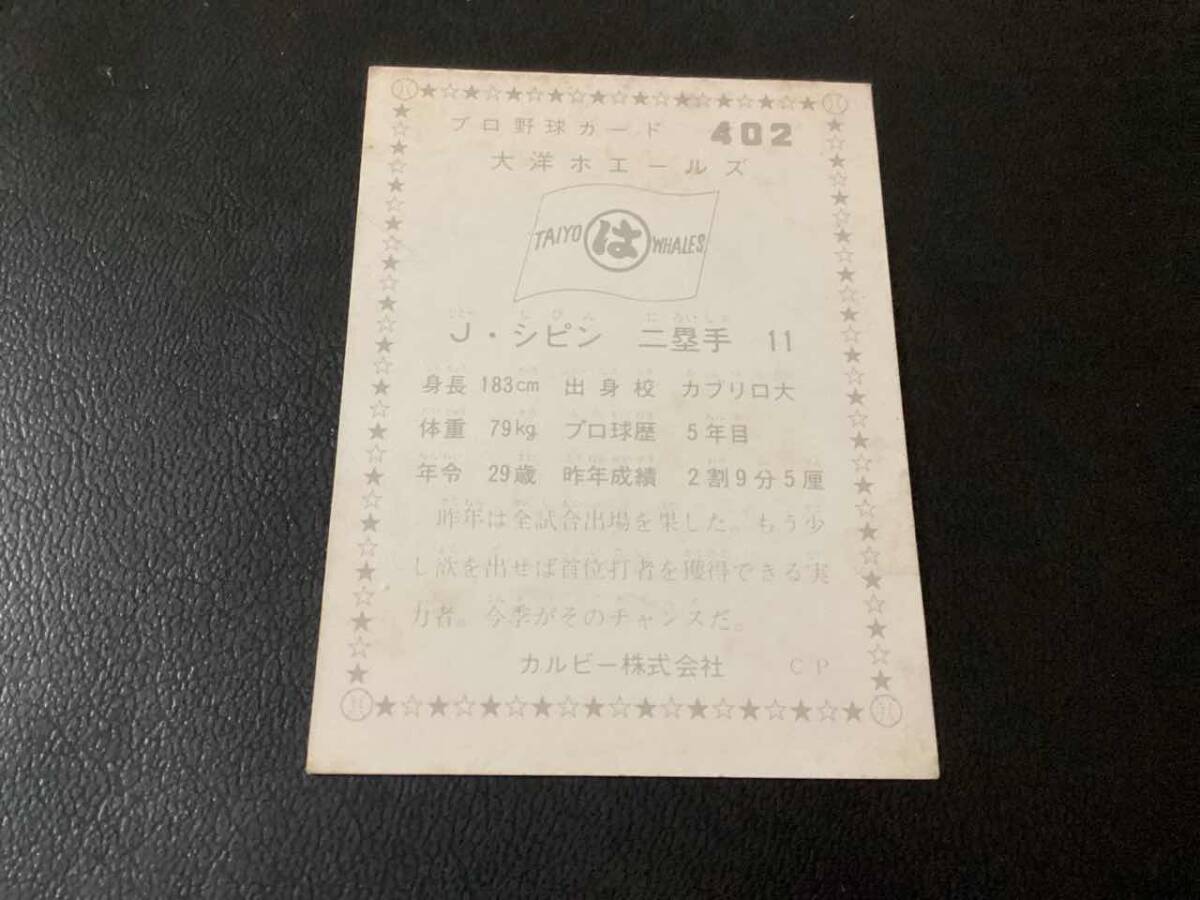 プロ野球カード 402
大洋ホエールズ
TAIYO は WHALES
J・シピン 二塁手 11
身長 183cm 出身校 カブリロ大
体重 79kg プロ球歴 5年目
年令 29歳 昨年成績 2割9分5厘
昨年は全試合出場を果した。もう少
し欲を出せば首位打者を獲得できる実
力者。今季がそのチャンスだ。
カルビー株式会社 CP